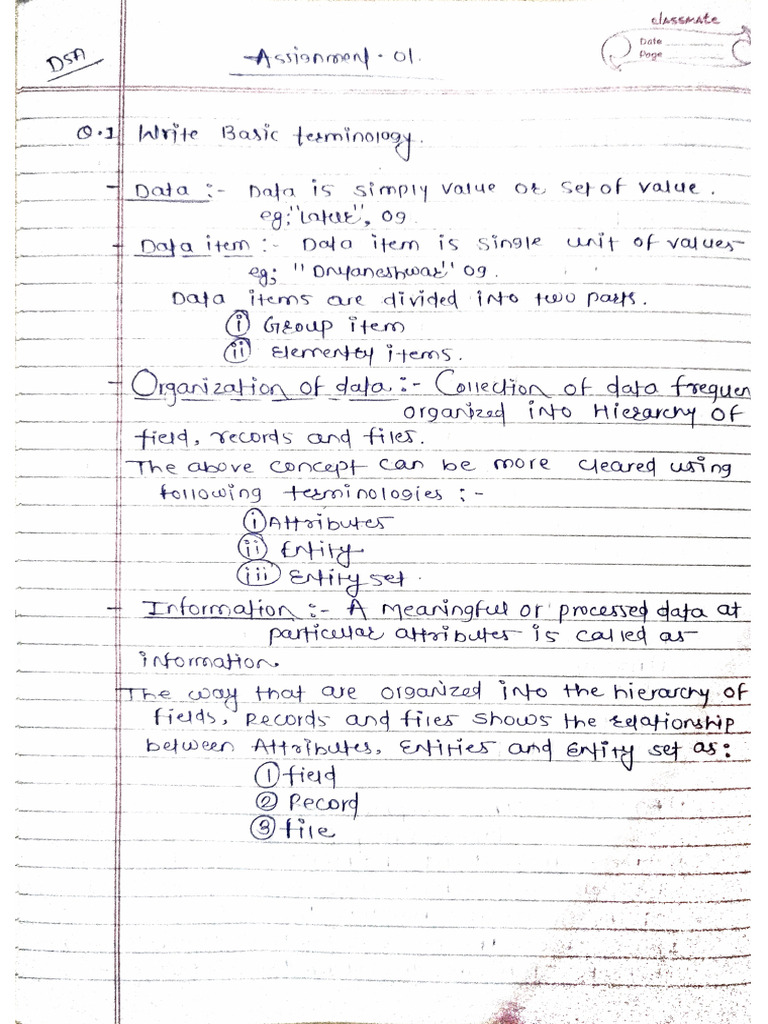 classmate
Date
Page
DSA
Assignment - 01.
Q.1 Write Basic terminology.
- Data :- Data is simply value or set of value.
eg; "Latur", 09
- Data item :- Data item is single unit of values
eg; "Dnyaneshwar" 09.
Data items are divided into two parts.
(i) Group item
(ii) Elementry items.
- Organization of data :- Collection of data frequen
organized into Hierarchy of
field, records and files.
The above concept can be more cleared using
following terminologies :-
(i) Attributes
(ii) Entity
(iii) Entity set.
- Information :- A meaningful or processed data at
particular attributes is called as
information.
The way that are organized into the hierarchy of
fields, Records and files shows the relationship
between Attributes, Entities and Entity set as:
(1) field
(2) Record
(3) file